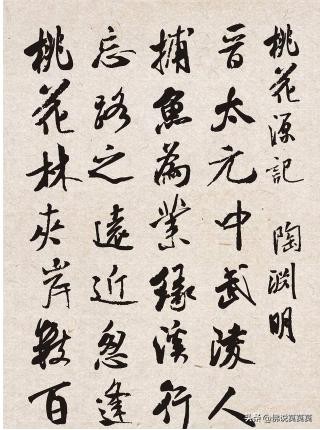 桃花源記 陶淵明
晉太元中武陵人
捕魚為業緣溪行
忘路之遠近忽逢
桃花林夾岸數百
头条 @佛说真真真